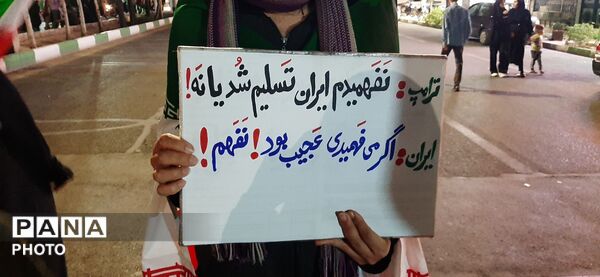 ترامپ: نَفَهمیدم ایران تسلیم شُد یا نَه!
ایران: اگر می فهمیدی عَجیب بود! نَفَهم!
PANA
PHOTO